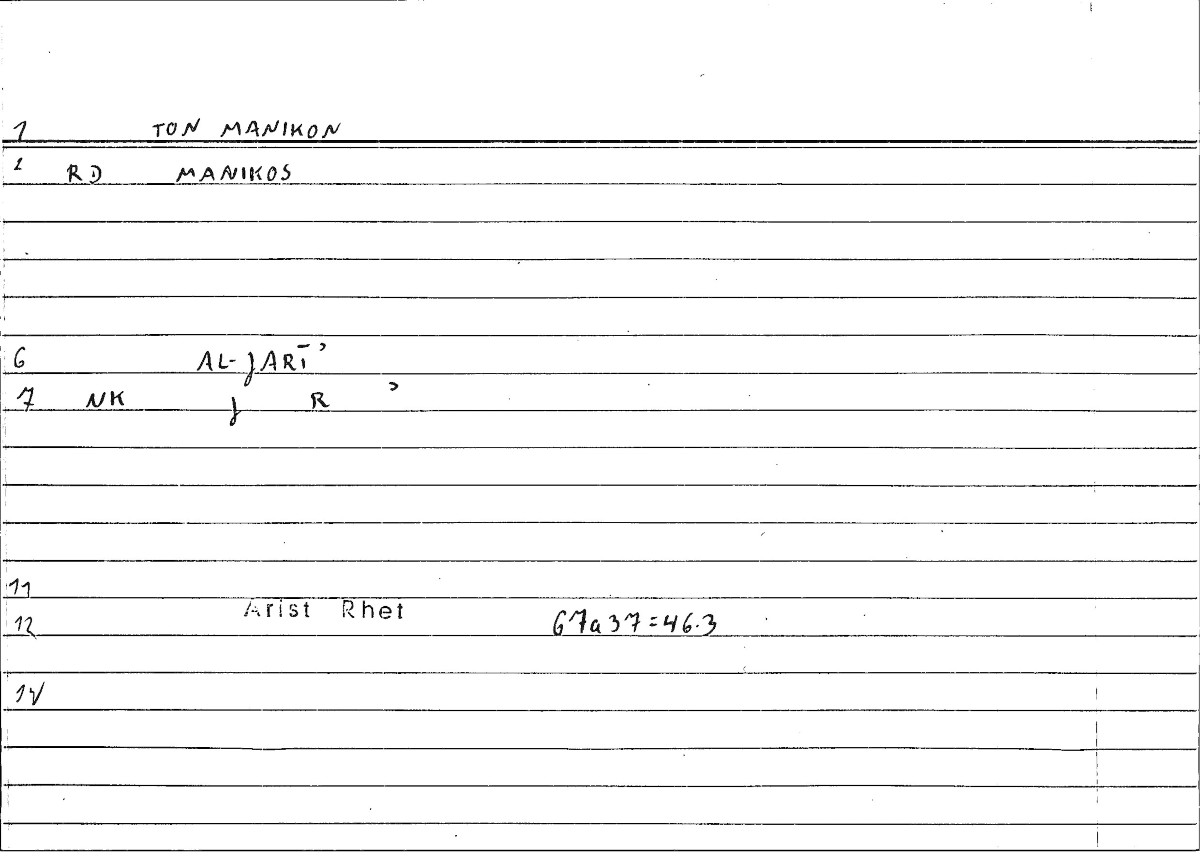 1 TON MANIKON
2 RD MANIKOS
6 AL-ǧARĪʾ
7 NK ǧ R ʾ
11
Arist Rhet
12 67a37=46.3
14